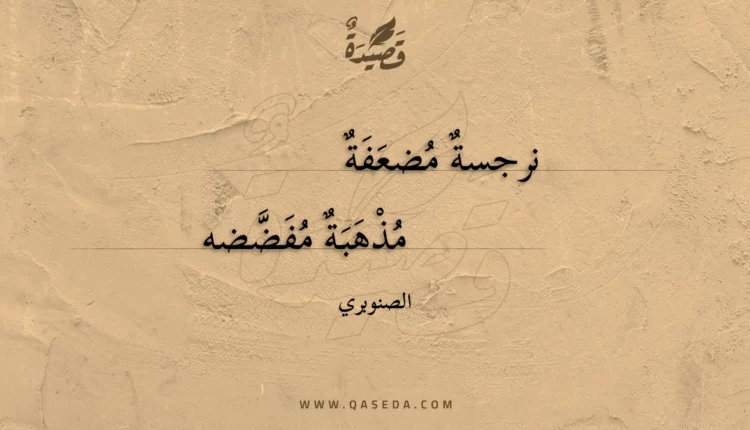 قَصِيْدَةٌ
نرجسةٌ مُضعَفَةٌ
مُذْهَبَةٌ مُفَضَّضه
الصنوبري
WWW.QASEDA.COM